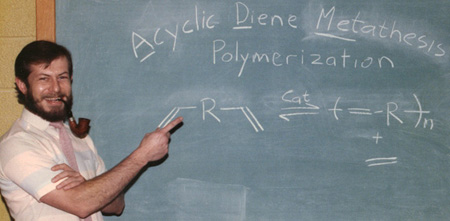 Acyclic Diene Metathesis
Polymerization
R Cat ( = R )n
+
=